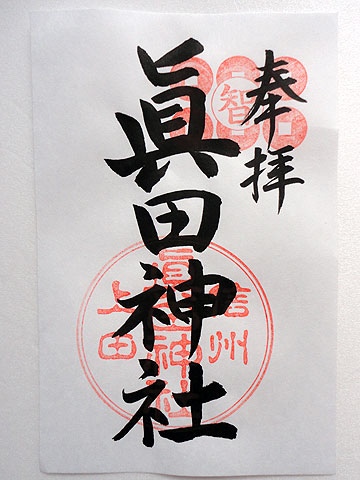 奉拝
智
眞田神社
信州
眞田神社
上田